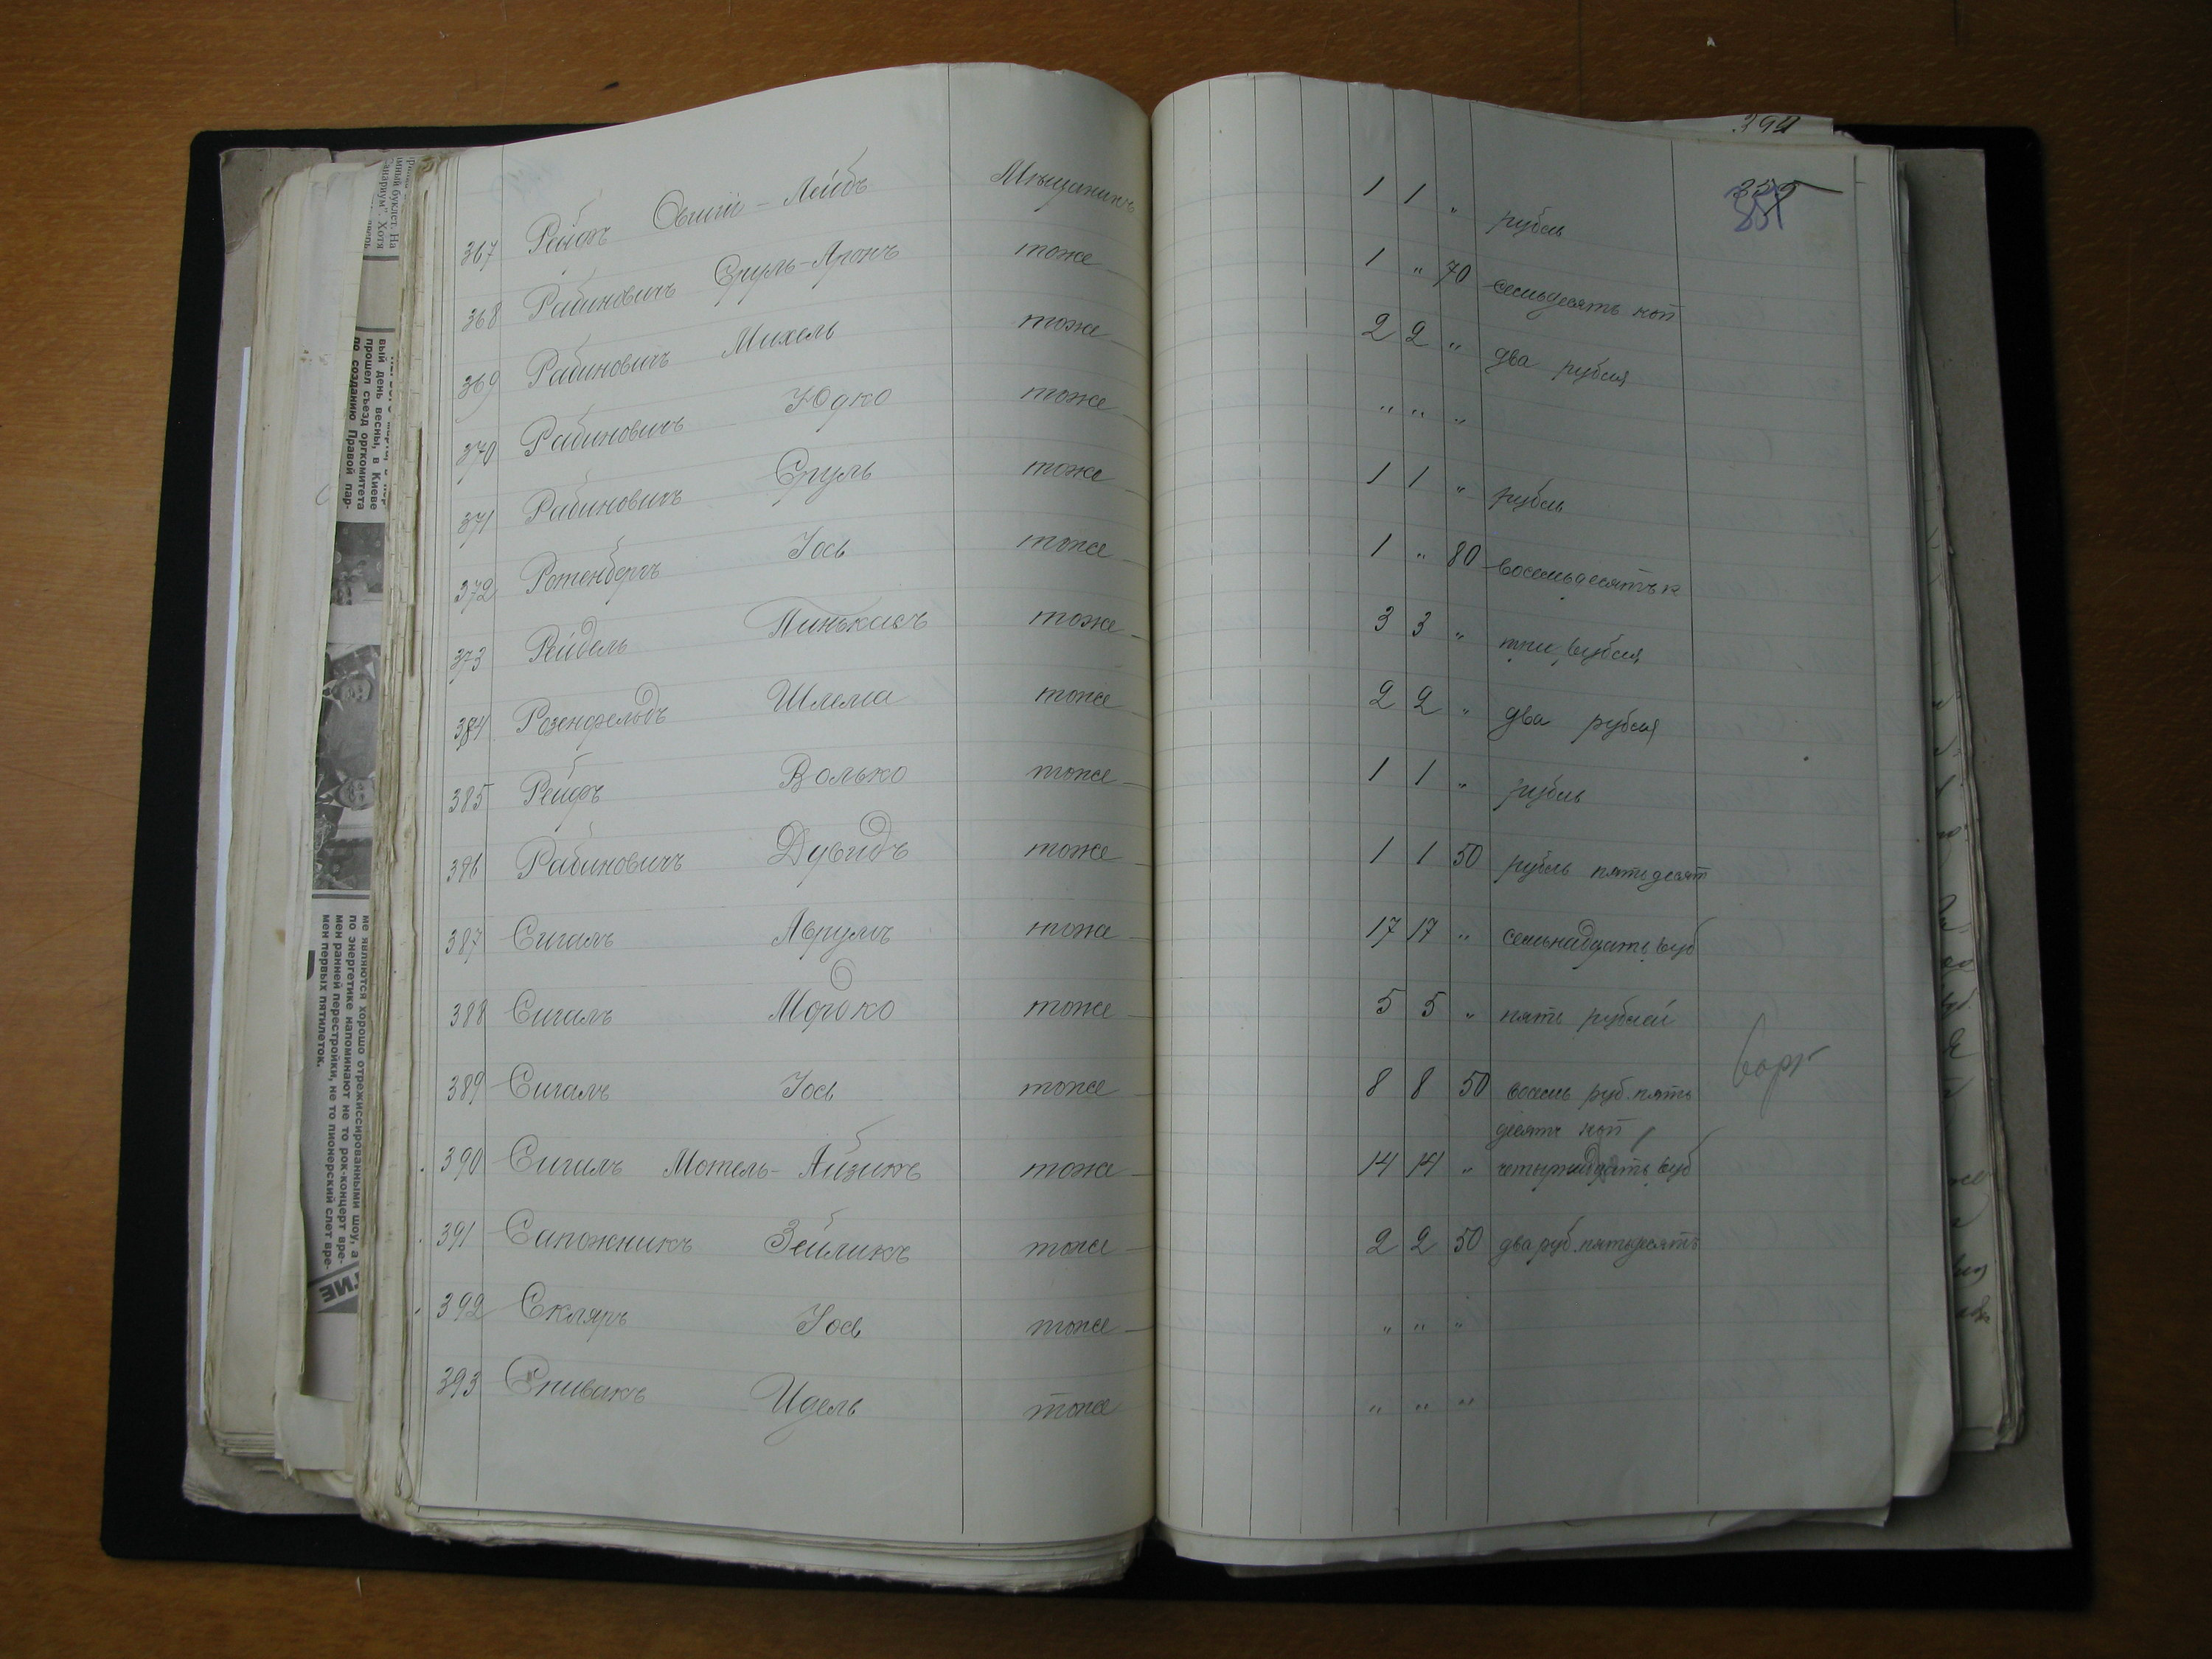 394
351
367 Рейфъ Овший-Лейбъ Мѣщанинъ 1 1 " рубль
368 Рабиновичъ Сруль-Аронъ тоже 1 " 70 семьдесятъ коп
369 Рабиновичъ Михель тоже 2 2 " два рубля
370 Рабиновичъ Юдко тоже " " "
371 Рабиновичъ Сруль тоже 1 1 " рубль
372 Ротенбергъ Іось тоже 1 " 80 восемьдесятъ к
373 Рейдель Пинькасъ тоже 3 3 " три рубля
384 Розенфельдъ Шлема тоже 2 2 " два рубля
385 Рейфъ Волько тоже 1 1 " рубль
386 Рабиновичъ Дувидъ тоже 1 1 50 рубль пятьдесят
387 Сигалъ Аврумъ тоже 17 17 " семьнадцать руб
388 Сигалъ Мордко тоже 5 5 " пять рублей
389 Сигалъ Іось тоже 8 8 50 восемь руб. пять
десятъ коп
390 Сигалъ Мотель-Айзикъ тоже 14 14 " четырнадцать руб
391 Сапожникъ Зейликъ тоже 2 2 50 два руб. пятьдесятъ
392 Скляръ Іось тоже " " "
393 Спивакъ Идель тоже " " "
вый день весны, в Киеве
прошел съезд оргкомитета
по созданию Правой пар-
ме являются хорошо отрежиссированными шоу, а
по энергетике напоминают не то рок-концерт вре-
мен ранней перестройки, не то пионерский слет вре-
мен первых пятилеток.